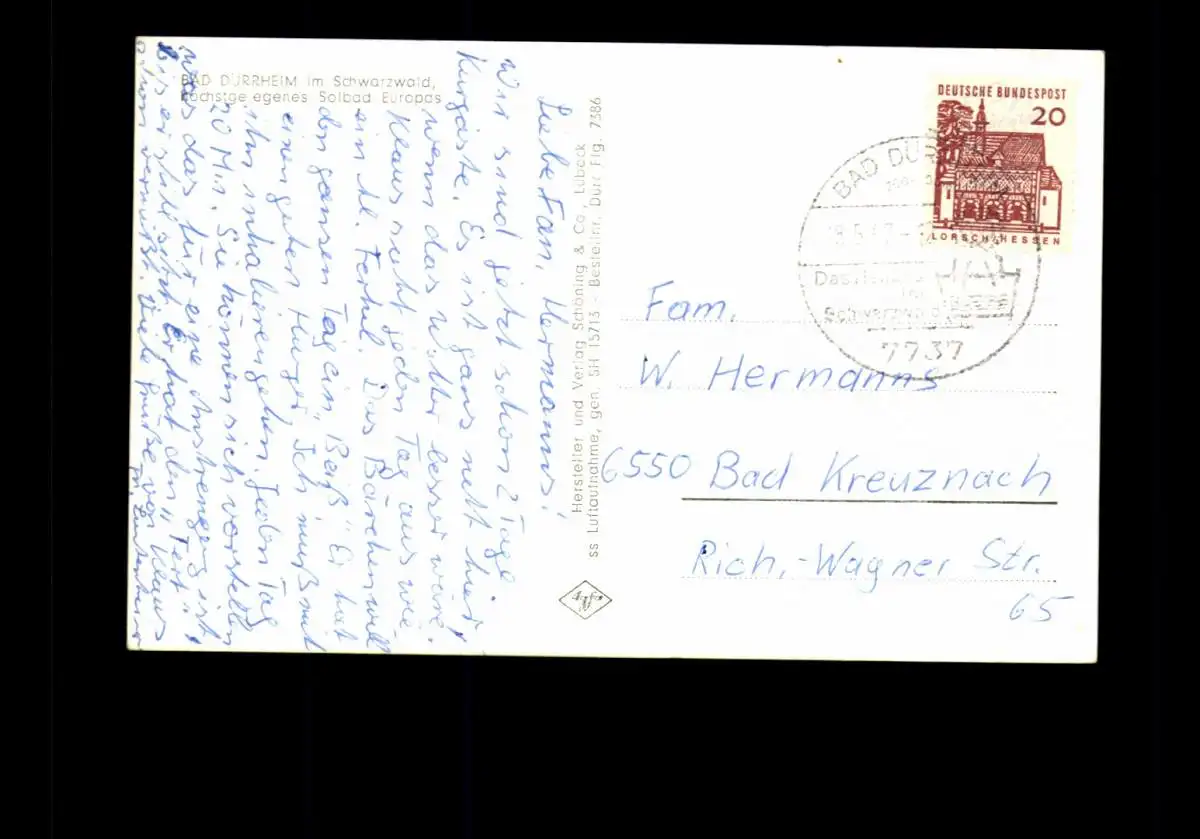 BAD DÜRRHEIM im Schwarzwald,
höchstgelegenes Solbad Europas
Liebe Fam. Hermanns!
Wir sind jetzt schon 2 Tage
Kurgäste. Es ist ganz nett hier,
wenn das Wetter besser wäre.
Klaus sieht jeden Tag aus wie
ein kl. Ferkel. Das Bärchen will
den ganzen Tag ein „Beiß“ Er hat
einen guten Hunger. Ich muß mit
ihm inhalieren gehen. Jeden Tag
20 Min. Sie können sich vorstellen
was das für eine Anstrengung ist,
bis er still sitzt. Er hat den „Teri“
schon vermißt. Viele Grüße von Klaus
Hersteller und Verlag Schöning & Co., Lübeck
ss Luftaufnahme, gen. SH 15713 - Bestellnr. Dürr Flg. 7386
Agfa
DEUTSCHE BUNDESPOST
20
LORSCH/HESSEN
BAD DÜRR
Das
im
Schwarzwald
7737
Fam.
W. Hermanns
6550 Bad Kreuznach
Rich.-Wagner Str.
65